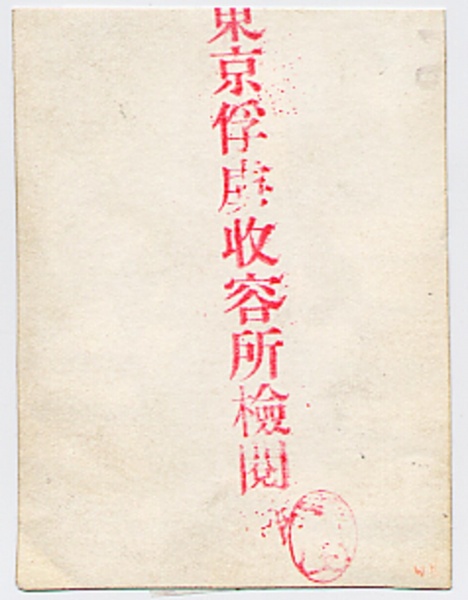 東京俘虜收容所檢閲